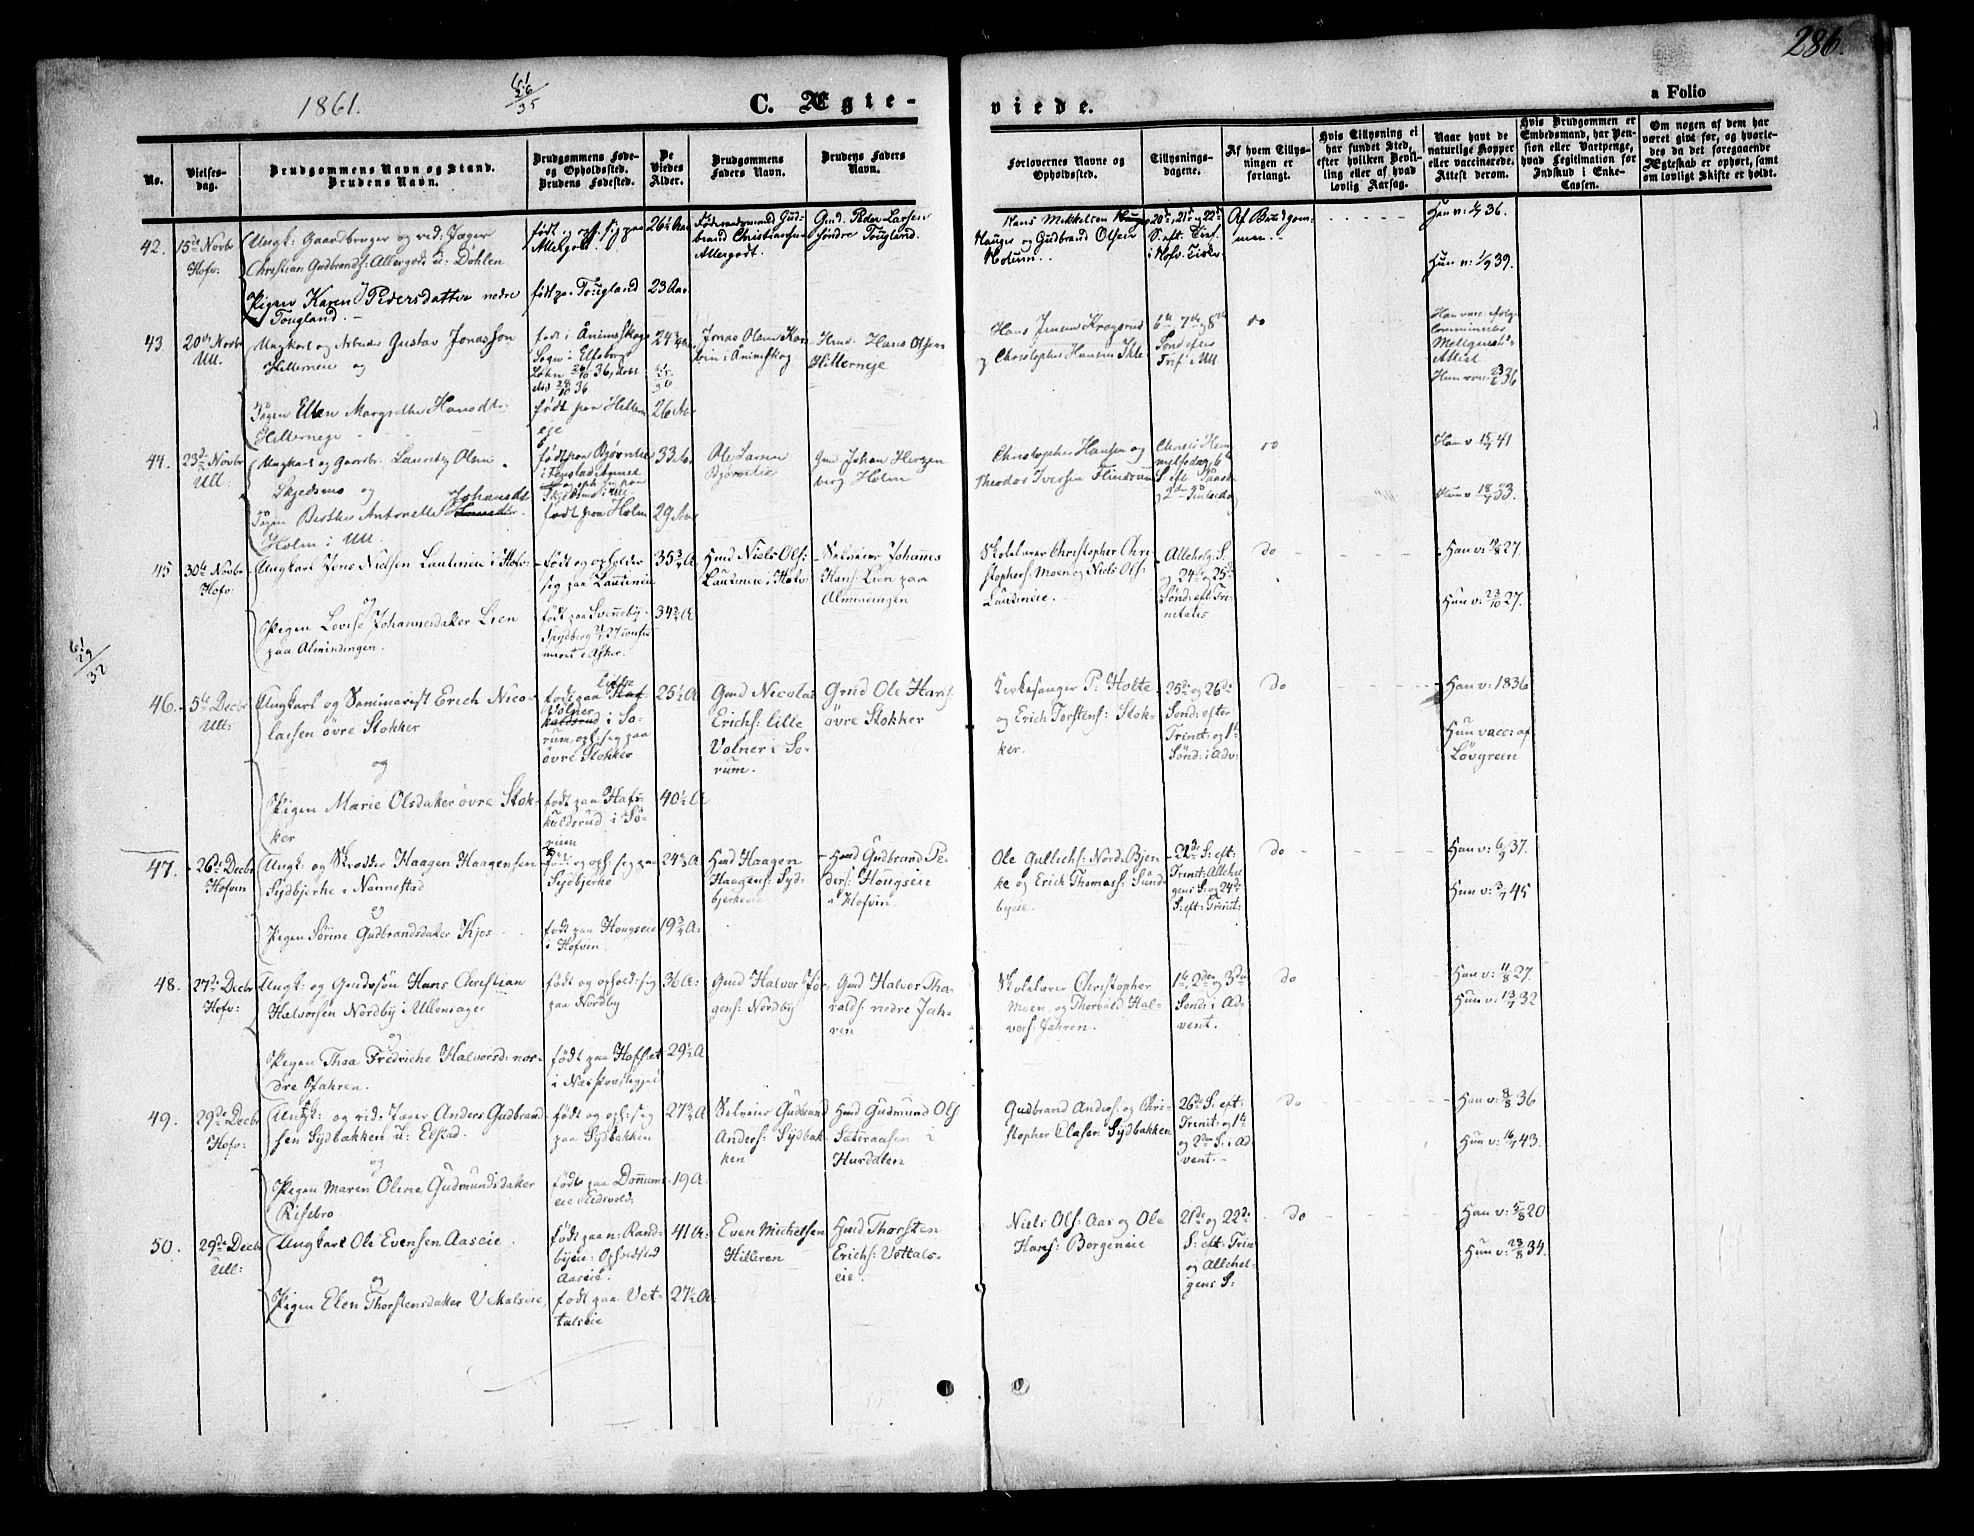 286.
1861.
C. Ægte-
viede.
a Folio
No.
Vielses-
dag.
Brudgommens Navn og Stand.
Brudens Navn.
Brudgommens Føde-
og Opholdssted.
Brudens Fødested.
De
Viedes
Alder.
Brudgommens
Faders Navn.
Brudens Faders
Navn.
Forlovernes Navne og
Opholdssted.
Tillysnings-
dagene.
Af hvem Tillys-
ningen er
forlangt.
Hvis Tillysning ei
har fundet Sted,
efter hvilken Bevil-
ling eller af hvad
lovlig Aarsag.
Naar havt de
naturlige Kopper
eller vaccinerede.
Attest derom.
Hvis Brudgommen er
Embedsmand, har Pen-
sion eller Vartpenge,
hvad Legitimation for
Indskud i Enke-
Cassen.
Om nogen af dem har
været gift før, og hvorle-
des da det foregaaende
Ægteskab er ophørt, samt
om lovligt Skifte er holdt.
42.
15de Novbr
Hofv:
Ungk: Gaardbruger og vid: Jæger
Christian Gudbrands: Allergodt u: Dahlen
Pigen Karen Pedersdatter nedre
Tougland.
født og oph. sig paa
Allergodt.
født paa Tougland
26½ Aar
23 Aar
Gud-
brand Christiansen
Allergodt
Gmd. Peder Larsen
søndre Tougland.
Hans Mikkelsen
Hauger og Gudbrand Olsen
Holum.
20de, 21de og 22de
S. eft. Trin.
i Hofv. Kirke
Af Brudgom-
men.
Han v: 36.
Hun v: 39.
43
20de Novbr
Ull.
Ungkarl og Arbeider Gustav Jonasson
Hillerneie og
Pigen Ellen Margrethe Hansdtr
Hillerneje
født i Ånimskogs
Sogn i Elfsborgs
Løhn 26/10 36, døbt
28/10 36
født paa Hillern-
eje
24¾ Aar
26 Aar
Jonas Olsen
i Ånimskog
Hmd. Hans Olsen
Hillerneje
Hans Jensen Kragsrud
og Christopher Hansen Ihle
6te, 7de og 8de
Sønd efter
Trif. i Ull
do
Attest
Hun vac: 36
44.
23de Novbr
Ull:
Ungkarl og Gaardbr. Lauritz Olsen
Skjedsmo og
Pigen Berthe Antonette Johansdt
Holm i Ull.
født paa Bjørntie
Skjedsmo i Ull
født paa Holm
33 Aar
29 Aar
Ole Larsen
Bjørntie
Gmd Johan Hertzen-
berg Holm
Christopher Hansen og
Theodor Iversen Flindrum
do
Han v 41
Hun v 33.
45
30te Novbr
Hofv:
Ungkarl Jens Nielsen Lautneie i Hofv:
og
Pigen Lovise Johannesdatter Lien
paa Almindingen.
født og opholder
sig paa Lautneie
født paa Svenneby
Spydberg 27 confir-
meret i Asker.
35¾ A
34¾ A
Hmd Niels Ols:
Lautneie i Hofv:
Selveier Johannes
Hans: Lien paa
Almindingen
Skolelærer Christopher Chri-
stophers: Moen og Niels Ols:
Lautneie.
Allehelg: S.
og 24de og 25de
Sønd: eft: Tri-
nitatis
do
Han v: 27.
Hun v: 23/10 27.
46.
5te Decbr
Ull:
Ungkarl og Seminarist Erich Nico-
laisen øvre Stokker
og
Pigen Marie Olsdatter øvre Stok-
ker
født paa Haf- lille
kuldsrud Volner i Sø-
rum, oph: sig paa
øvre Stokker
født paa Hafs-
kuldsrud i Sø-
rum
25½ A
40½ A
Gmd Nicolai
Erichs: lille
Volner i Sø-
rum.
Gmd Ole Hans:
øvre Stokker
Kirkesanger P: Holte
og Erich Torstens: Stok-
ker.
25de og 26de
Sønd: efter
Trinit: og 1te
Sønd: i Adv:
do
Han v: 1836
Hun vacc: af
Løvgreen
47.
26de Decbr
Hofvin
Ungk: og Skrædder Haagen Haagensen
Sydbjerke i Nannestad
og
Pigen Sørine Gudbrandsdatter Kjos
født og oph: sig paa
Sydbjerke
født paa Hougseie
i Hofvin.
24¾ A
19¾ A:
Hmd Haagen
Haagens: Syd-
bjerkeeie
Hmd Gudbrand Pe-
ders: Hougseie
i Hofvin.
Ole Gullichs: Nord-Bjer-
ke og Erich Thomass: Sund-
byeie.
22de S: eft:
Trinit: Allehel-
gens S: og 24de
S: eft: Trinit:
do
Han v: 6/9 37.
Hun v: 3/7 45
48.
27de Decbr
Hofv:
Ungk: og Gmdssøn Hans Christian
Halvorsen Nordby i Ullensager
og
Pigen Thea Fredriche Halvorsd: nor-
dre Jahren.
født og ophold: sig
paa Nordby
født paa Hofslet
i Næs Præstegjeld
36 A:
29½ A
Gmd Halvor Jør-
gens: Nordby
Gmd Halvor Tho-
ralds: nedre Jah-
ren
Skolelærer Christopher
Moen, og Thorvald Hal-
vors: Jahren.
1te, 2den og 3die
Sønd: i Ad-
vent.
do
Han v: 11/8 27.
Hun v: 13/7 32
49.
29de Decbr
Hofv:
Ungk: og vid. Jæger Anders Gudbrand-
sen Sydbakken u: Elstad.
og
Pigen Maren Oline Gudmundsdatter
Risebro
født og oph: sig
paa Sydbakken
født paa Donnum-
eie i Eidsvold.
27¾ A
19 A:
Selveier Gudbrand
Anders: Sydbak-
ken
Hmd Gudmund Ols:
Sæteraasen i
Hurdalen
Gudbrand Anders: og Chri-
stopher Olasen Sydbakken
26de S: eft:
Trinit: og 1te
og 2den S: i Ad-
vent.
do
Han v: 8/8 36
Hun v: 16/7 43.
50.
29de Decbr
Ull:
Ungkarl Ole Evensen Aaseie
og
Pigen Elen Thorstensdatter Vettalseie,
født paa n: Rand-
byeie: Opholdsted
Aaseie.
født paa Vet-
talseie
41 A:
27½ A:
Even Michelsen
Hilleren
Hmd Thorsten
Erichs: Vettals-
eie
Niels Ols: Aas og Ole
Hans: Borgeneie
21de og 22de
S: eft: Trin
og Allehel-
gens S:
do
Han v: 5/8 20
Hun v: 23/8 34.